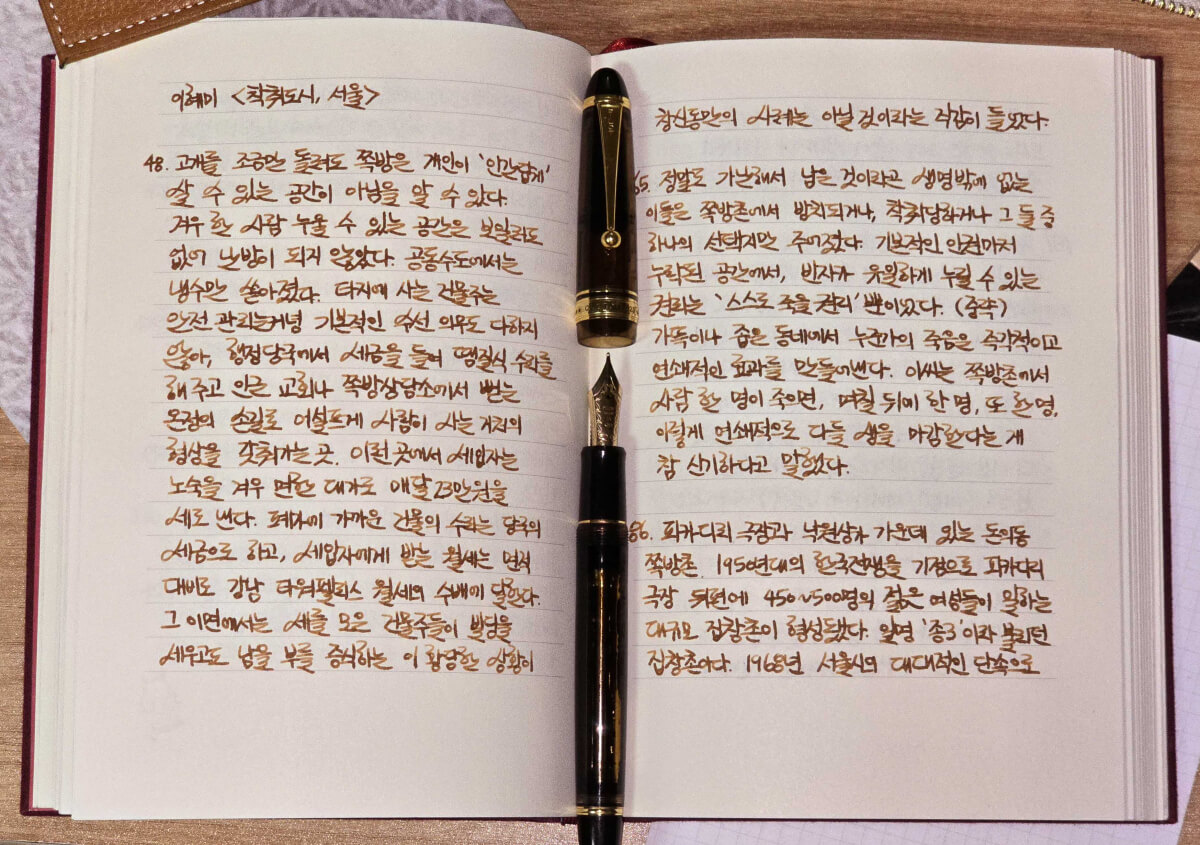 이혜미 <착취도시, 서울>
48. 고개를 조금만 돌려도 쪽방은 개인이 '인간답게'
살 수 있는 공간이 아님을 알 수 있었다.
겨우 한 사람 누울 수 있는 공간은 보일러도
없어 난방이 되지 않았다. 공동수도에서는
냉수만 쏟아졌다. 타지에 사는 건물주는
안전 관리는커녕 기본적인 수선 의무도 다하지
않아, 행정당국에서 세금을 들여 땜질식 수리를
해 주고 인근 교회나 쪽방상담소에서 뻗는
온정의 손길로 어설프게 사람이 사는 거처의
형상을 갖춰가는 곳. 이런 곳에서 세입자는
노숙을 겨우 면한 대가로 매달 23만원을
세로 낸다. 폐가에 가까운 건물의 수리는 당국의
세금으로 하고, 세입자에게 받는 월세는 면적
대비로 강남 타워팰리스 월세의 수배에 달한다.
그 이면에서는 세를 모은 건물주들이 빌딩을
세우고도 남을 부를 증식하는 이 황당한 상황이
창신동만의 사례는 아닐 것이라는 직감이 들었다.
65. 정말로 가난해서 남은 것이라곤 생명밖에 없는
이들은 쪽방촌에서 방치되거나, 착취당하거나 그 둘 중
하나의 선택지만 주어졌다. 기본적인 안전마저
누락된 공간에서, 빈자가 유일하게 누릴 수 있는
권리는 '스스로 죽을 권리' 뿐이었다. (중략)
가뜩이나 좁은 동네에서 누군가의 죽음은 즉각적이고
연쇄적인 효과를 만들어낸다. 이씨는 쪽방촌에서
사람 한 명이 죽으면, 며칠 뒤에 한 명, 또 한 명,
이렇게 연쇄적으로 다들 생을 마감한다는 게
참 신기하다고 말했다.
86. 피카디리 극장과 낙원상가 가운데 있는 돈의동
쪽방촌. 1950년대의 한국전쟁을 기점으로 피카디리
극장 뒤편에 450~500명의 젊은 여성들이 일하는
대규모 집창촌이 형성됐다. 일명 '종3'이라 불리던
집창촌이다. 1968년 서울시의 대대적인 단속으로